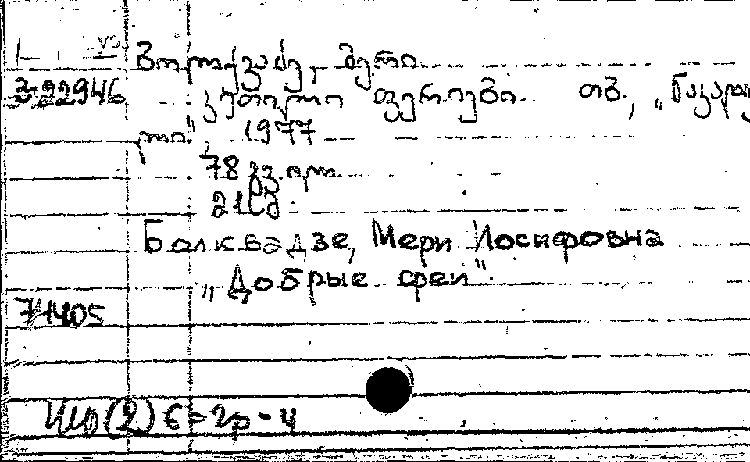 ბოლქვაძე, მერი
კ-22946 კეთილი ფერიები. თბ., „ნაკადუ
ლი", 1977
78 გვ. ილ.
21სმ.
Болквадзе, Мери Иосифовна
„Добрые феи".
71405
6=2р-4